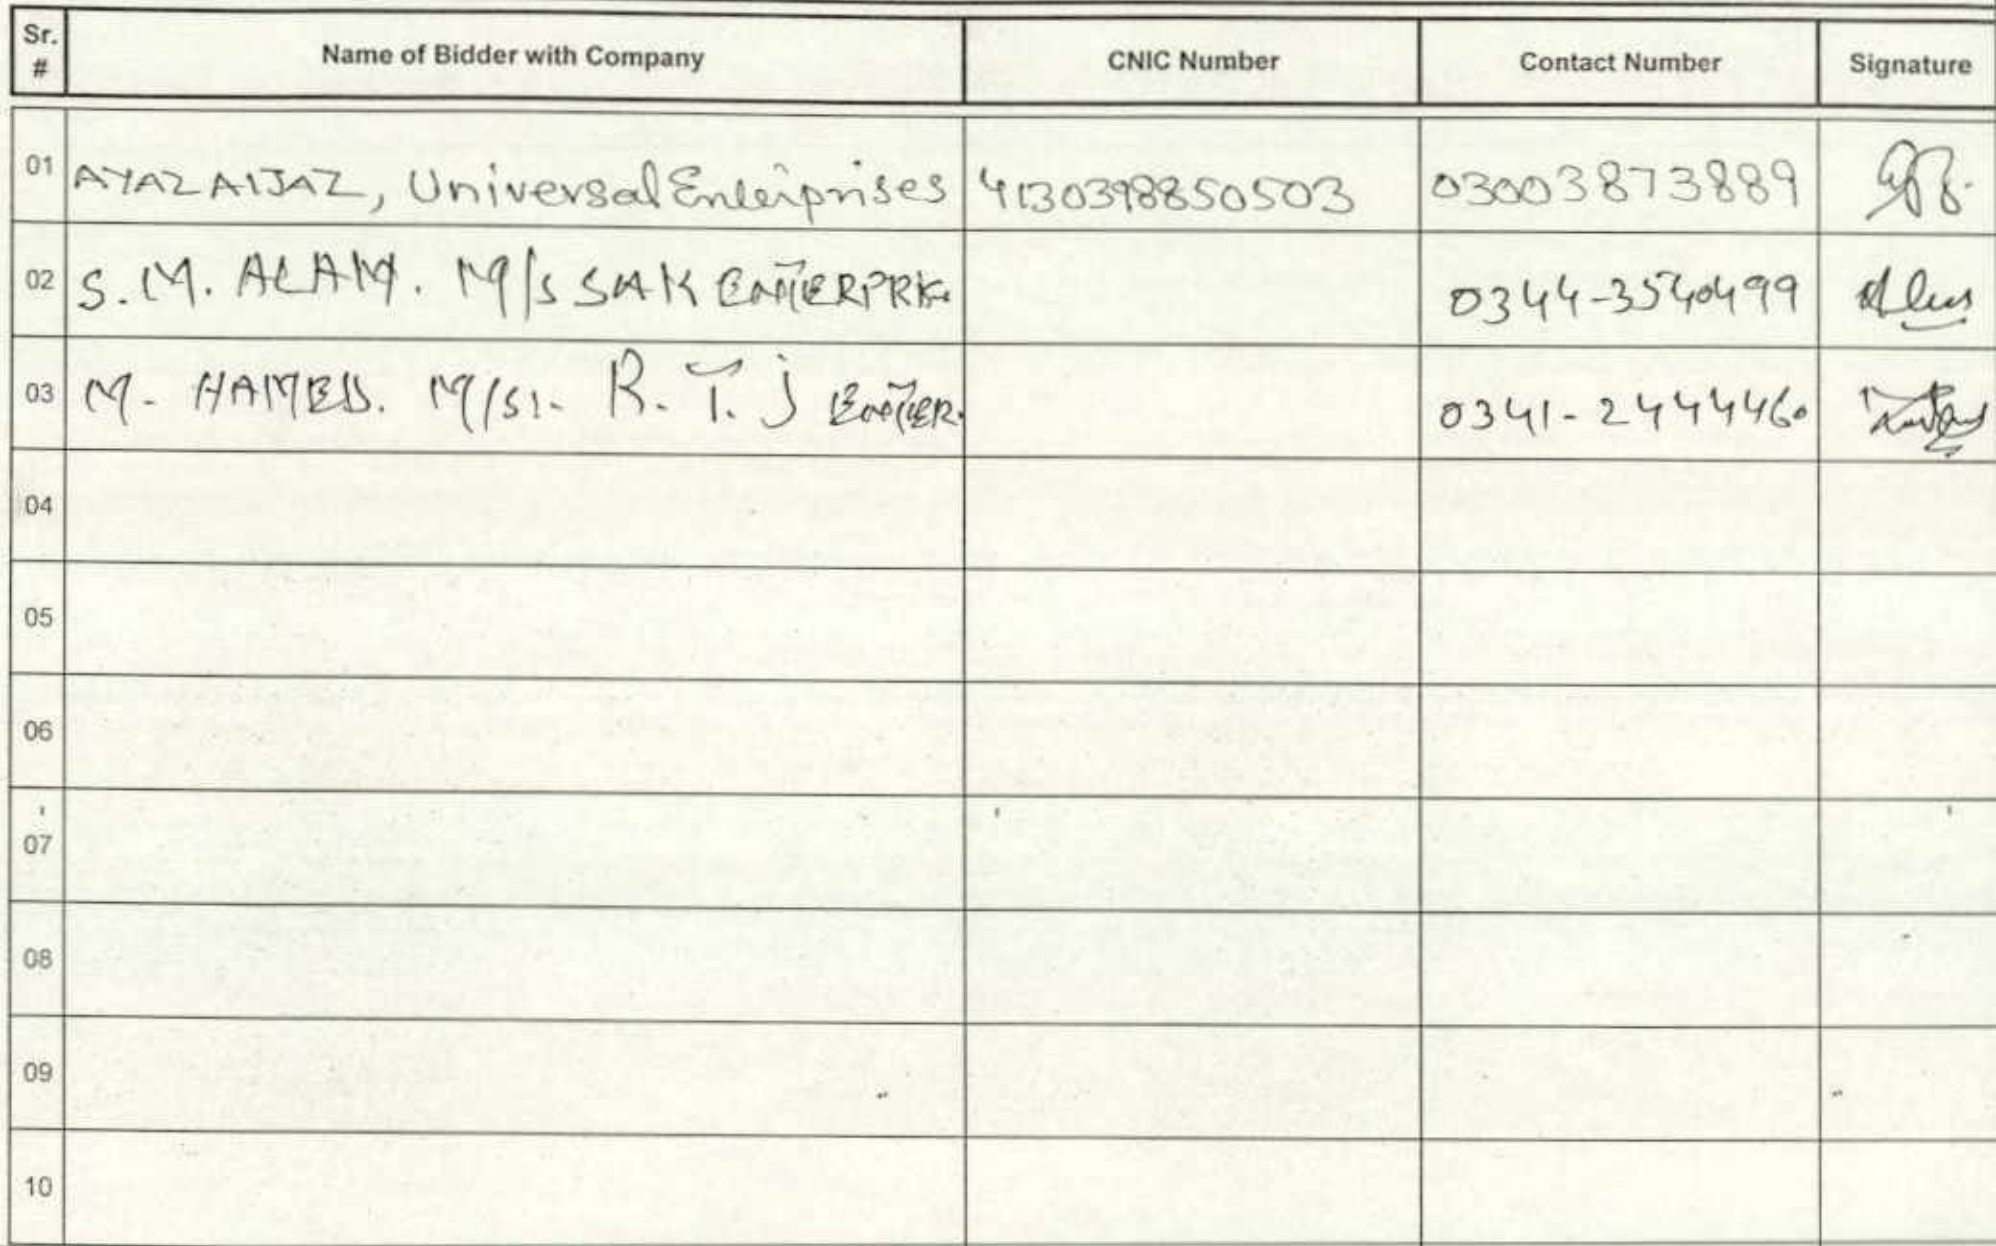 Sr. # Name of Bidder with Company CNIC Number Contact Number Signature
01 AYAZ AIJAZ, Universal Enterprises 4130398850503 03003873889
02 S.M. ALAM. M/S SAK ENTERPRIS. 0344-3540499
03 M. HAMEED. M/S:- R.T.J ENTER. 0341-2444460
04
05
06
07
08
09
10